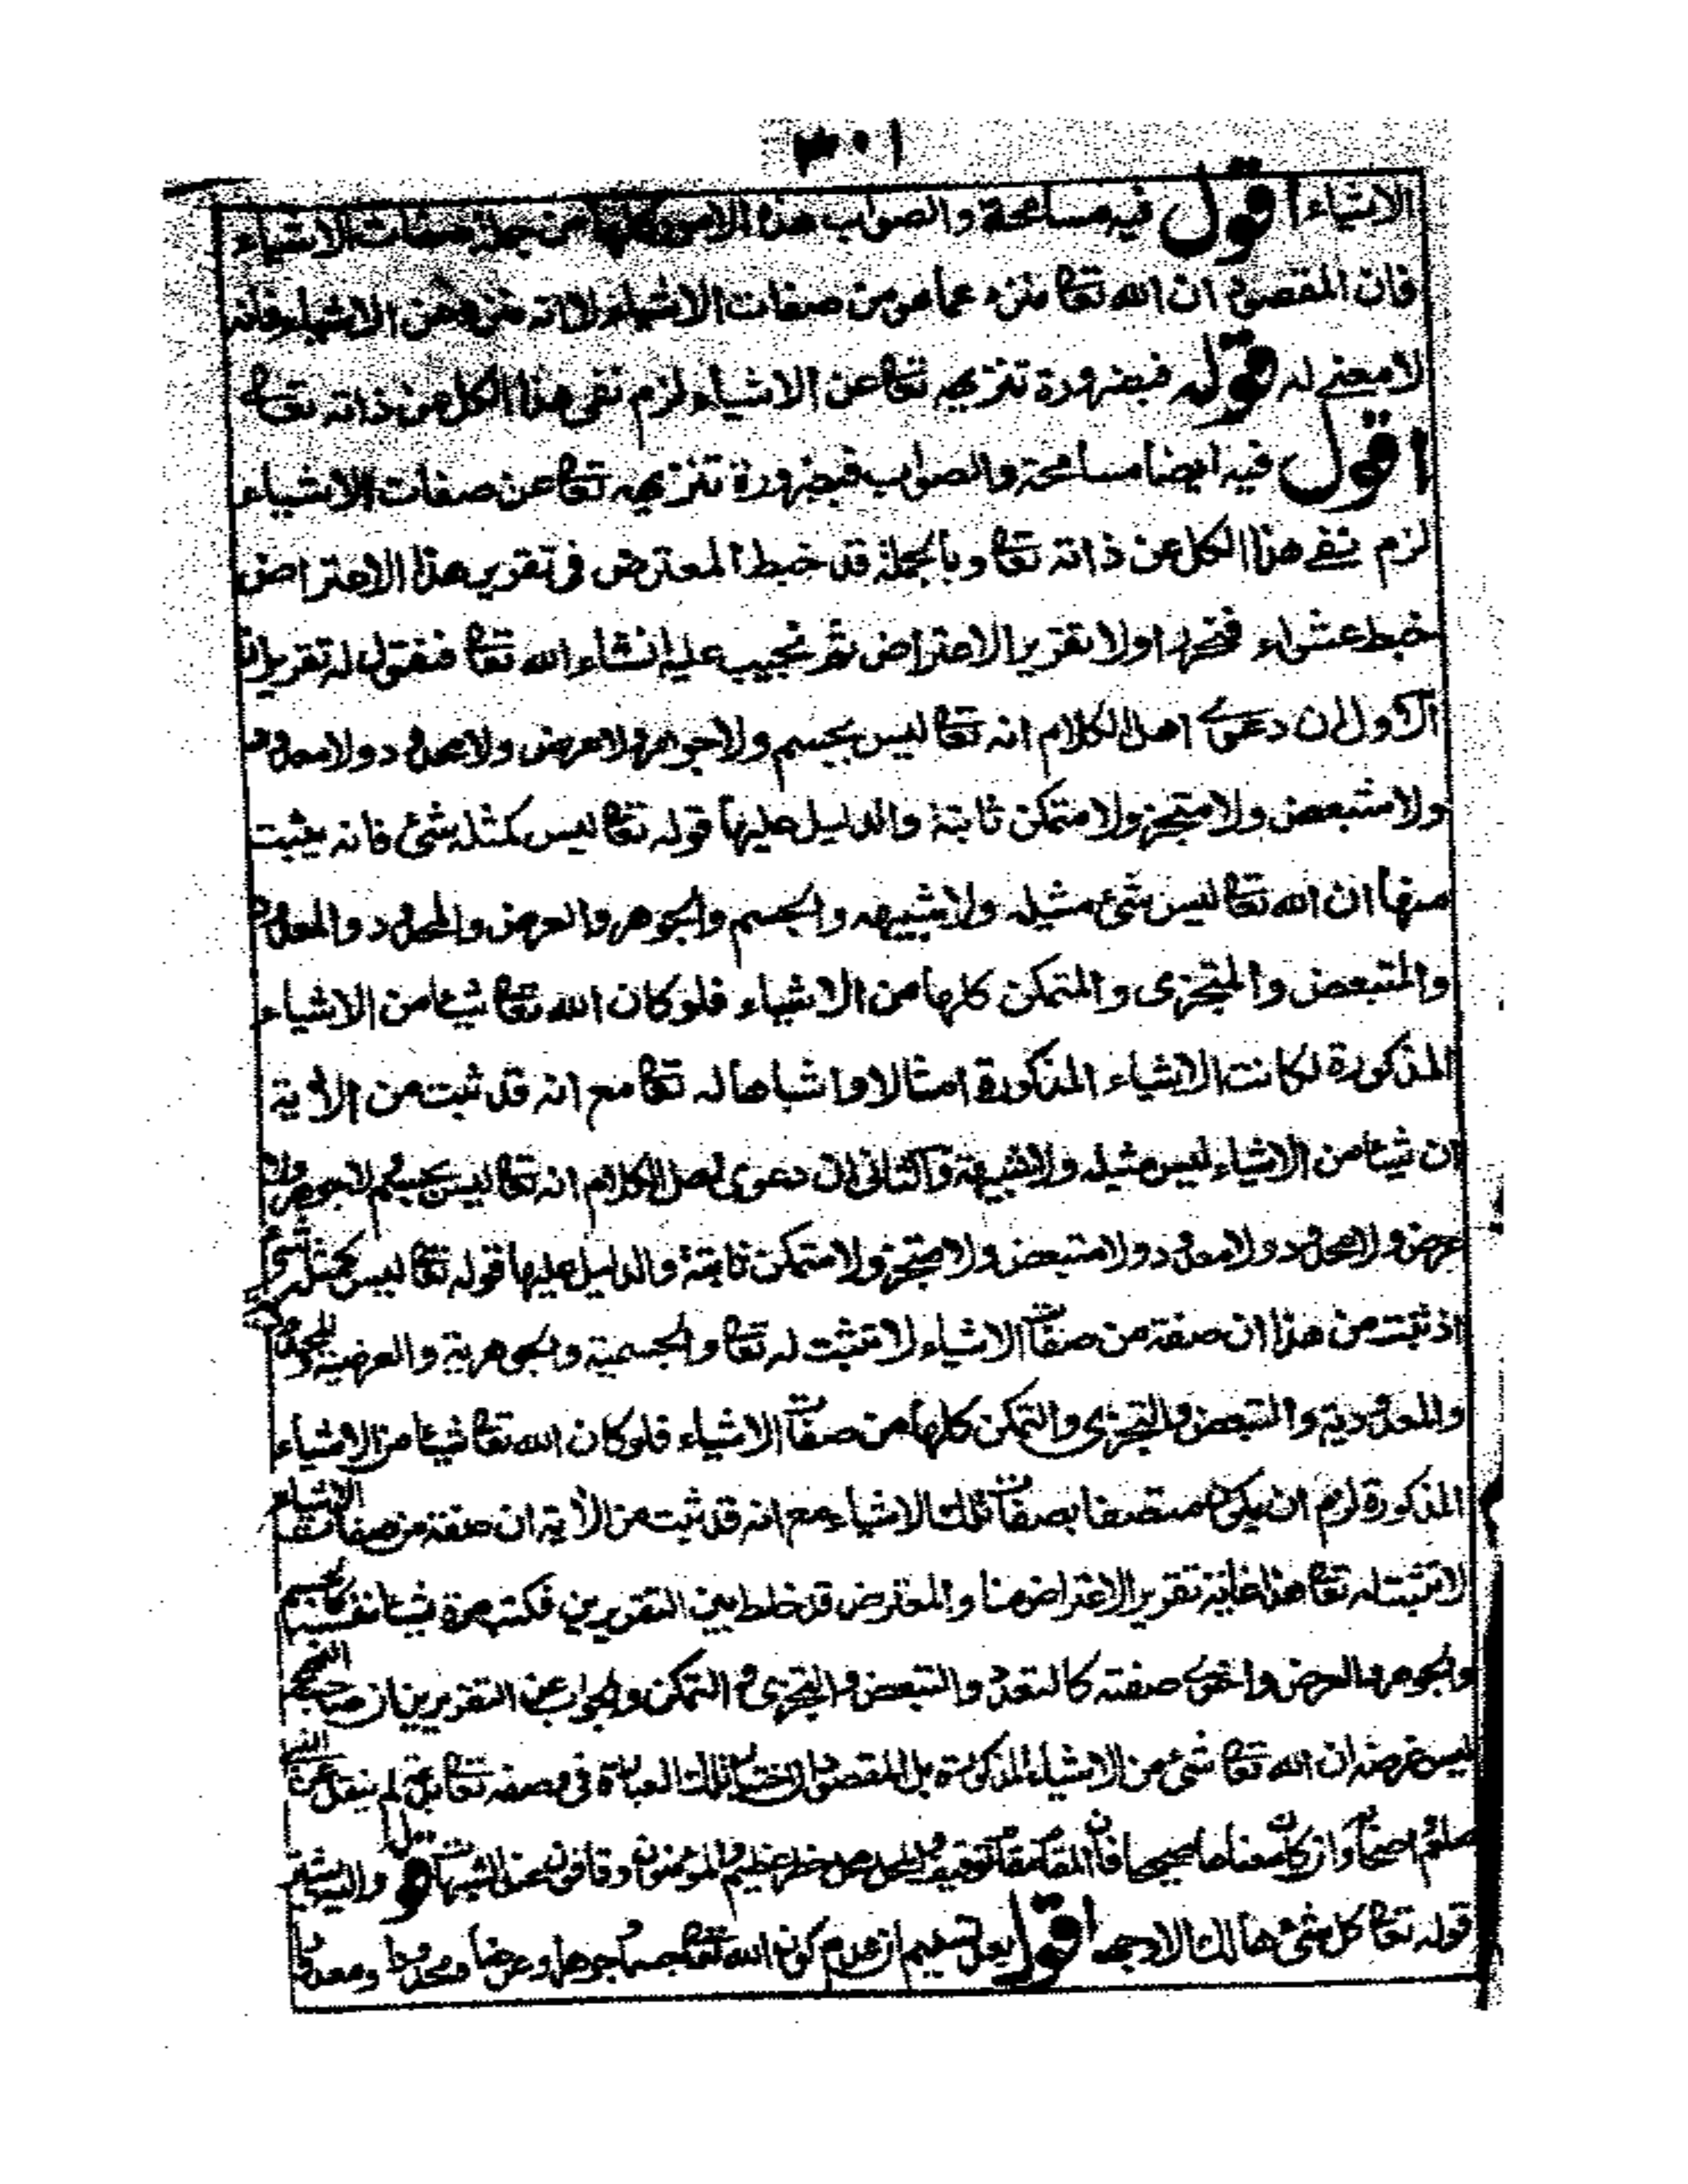 ٣٠١
الاشياء اقول فيه مسامحة والصواب هذه الامور كلها من جملة صفات الاشياء
فان المقصود ان الله تعا منزه عما هو من صفات الاشياء لا انه منزه عن الاشياء فانه
لا معنى له قوله فبضرورة تنزيهه تعا عن الاشياء لزم نفى هذا الكل عن ذاته تعا
اقول فيه ايضا مسامحة والصواب فبضرورة تنزيهه تعا عن صفات الاشياء
لزم نفى هذا الكل عن ذاته تعا وبالجملة قد خبط المعترض فى تقرير هذا الاعتراض
خبط عشواء فنحرر اولا تقرير الاعتراض ثم نجيب عليه انشاء الله تعا فنقول له تقريران
الاول ان دعوى اهل الكلام انه تعا ليس بجسم ولا جوهر ولا عرض ولا محدود ولا معدود
ولا متبعض ولا متجز ولا متمكن ثابتة والدليل عليها قوله تعا ليس كمثله شئ فانه يثبت
منها ان الله تعا ليس شئ مثيله ولا شبيهه والجسم والجوهر والعرض والمحدود والمعدود
والمتبعض والمتجزى والمتمكن كلها من الاشياء فلو كان الله تعا شيئا من الاشياء
المذكورة لكانت الاشياء المذكورة امثالا واشباها له تعا مع انه قد ثبت من الآية
ان شيئا من الاشياء ليس مثيله ولا شبيهه والثانى ان دعوى اهل الكلام انه تعا ليس بجسم ولا جوهر ولا
عرض ولا محدود ولا معدود ولا متبعض ولا متجز ولا متمكن ثابتة والدليل عليها قوله تعا ليس كمثله شئ
اذ ثبت من هذا ان صفة من صفات الاشياء لا تثبت له تعا والجسمية والجوهرية والعرضية والمحدودية
والمعدودية والتبعض والتجزى والتمكن كلها من صفات الاشياء فلو كان الله تعا شيئا من الاشياء
المذكورة لزم ان يكون متصفا بصفات تلك الاشياء مع انه قد ثبت من الآية ان صفة من صفات الاشياء
لا تثبت له تعا هذا غاية تقرير الاعتراض منا والمعترض قد خلط بين التقريرين فكتب مرة شيئا نفسه كالجسم
والجوهر والعرض واخرى صفته كالتعدد والتبعض والتجزى والتمكن والجواب عن التقريرين ان صاحب النهج
ليس غرضه ان الله تعا شئ من الاشياء المذكورة بل المقصود ان اختيار تلك العبارة فى وصفه تعا بدعة لم ينقل عن النبى
صلعم واصحابه وان كان معناها صحيحا فان المقام مقام توقيف والمحل محل خطر عظيم والمؤمنون وقافون عند الشبهات قوله واليه يشير
قوله تعا كل شئ هالك الا وجهه اقول بعد تسليم ان عدم كون الله تعا جسما وجوهرا وعرضا ومحدودا ومعدودا